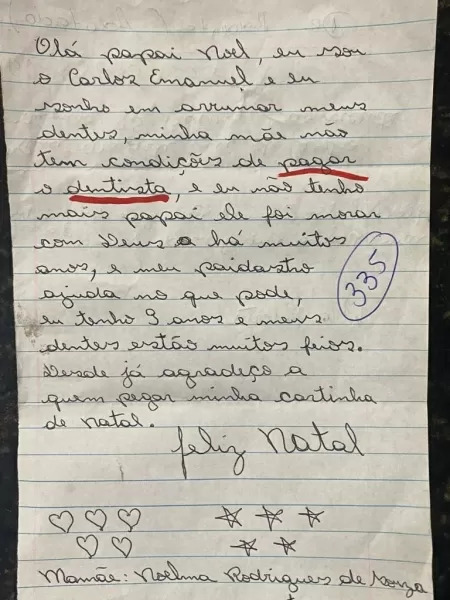 Olá papai Noel, eu sou
o Carlos Emanuel e eu
sonho em arrumar meus
dentes, minha mãe não
tem condições de pagar
o dentista, e eu não tenho
mais papai ele foi morar
com Deus a há muitos
anos, e meu paidastro
ajuda no que pode,
335
eu tenho 9 anos e meus
dentes estão muitos feios.
Desde já agradeço a
quem pegar minha cartinha
de natal.
feliz Natal
Mamãe: Noelma Rodrigues de Souza